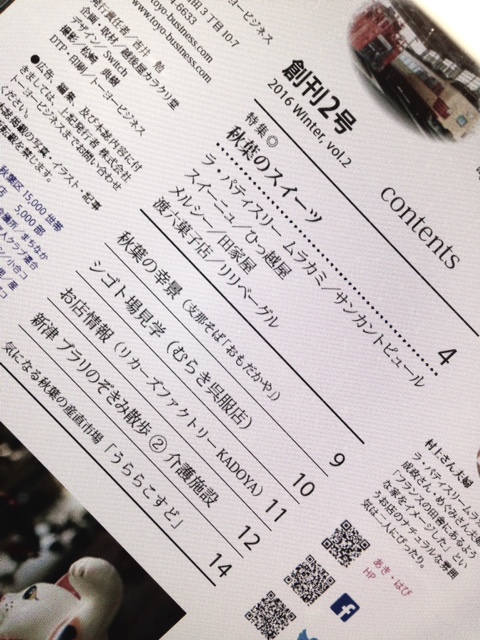 創刊2号
2016 Winter, vol.2
contents
特集◎
秋葉のスイーツ 4
ラ・パティスリー ムラカミ／サンカントピュール
スイーニュ／ひっ越屋
メルシー／田家屋
渡六菓子店／リリベーグル
秋葉の幸景（支那そば「おもだかや」） 9
シゴト場見学（むらき呉服店） 10
お店情報（リカーズファクトリー KADOYA） 11
新津 ブラリのぞきみ散歩 ② 介護施設 12
気になる秋葉の産直市場「うららこすど」 14
ヨービジネス
田3丁目10-7
-6633
www.toyo-business.com
www.toyo-business.com
発行責任者／吉井 勉
企画・取材／越後屋カラクリ堂
デザイン／Switch
撮影／松崎 典樹
DTP・印刷／トーヨービジネス
●広告、編集、及び本誌内容に付
きましては、上記発行者 株式会社
トーヨービジネスまでお問い合わせ
ください。
掲載の写真・イラスト・記事
転載を禁じます。
秋葉区 15,000 世帯
店 5,000 部
村上さん夫婦
ラ・パティスリームラ
成彦さん・めぐみさん夫
「フランスの田舎にあるよう
な家をイメージした」とい
うお店のナチュラルな雰囲
気は一人にぴったり。
あき・はび
HP